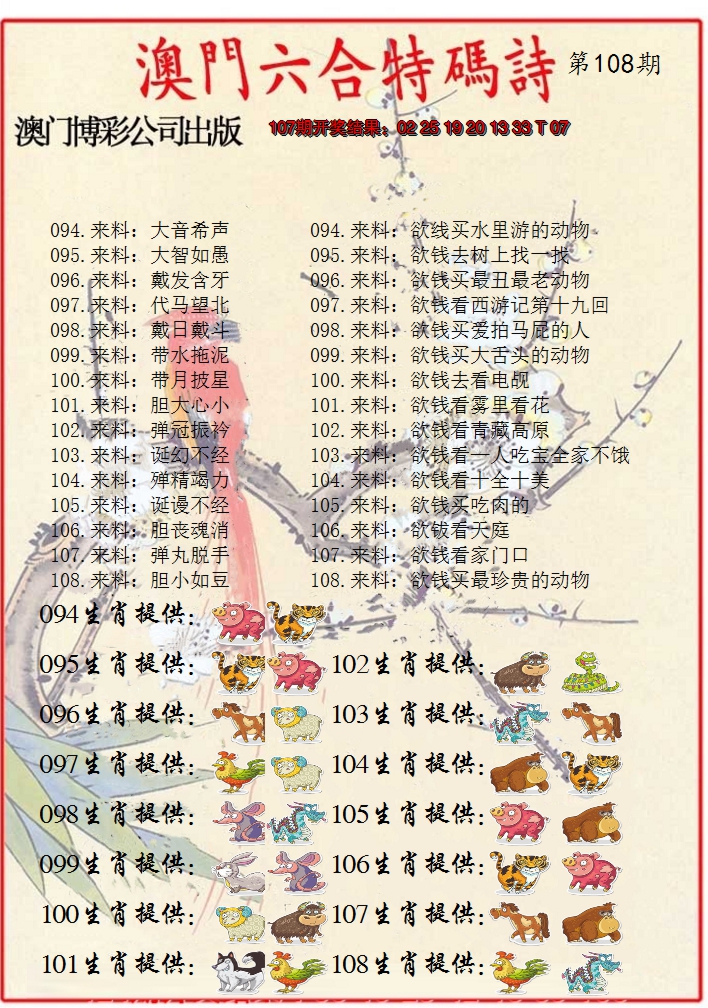 澳門六合特碼詩 第108期
澳门博彩公司出版 107期开奖结果：02 25 19 20 13 33 T 07
094.来料：大音希声 094.来料：欲线买水里游的动物
095.来料：大智如愚 095.来料：欲钱去树上找一找
096.来料：戴发含牙 096.来料：欲钱买最丑最老动物
097.来料：代马望北 097.来料：欲钱看西游记第十九回
098.来料：戴日戴斗 098.来料：欲钱买爱拍马屁的人
099.来料：带水拖泥 099.来料：欲钱买大舌头的动物
100.来料：带月披星 100.来料：欲钱去看电觇
101.来料：胆大心小 101.来料：欲钱看雾里看花
102.来料：弹冠振衿 102.来料：欲钱看青藏高原
103.来料：诞幻不经 103.来料：欲钱看一人吃宝全家不饿
104.来料：殚精竭力 104.来料：欲钱看十全十美
105.来料：诞谩不经 105.来料：欲钱买吃肉的
106.来料：胆丧魂消 106.来料：欲钹看天庭
107.来料：弹丸脱手 107.来料：欲钱看家门口
108.来料：胆小如豆 108.来料：欲钱买最珍贵的动物
094生肖提供：
095生肖提供： 102生肖提供：
096生肖提供： 103生肖提供：
097生肖提供： 104生肖提供：
098生肖提供： 105生肖提供：
099生肖提供： 106生肖提供：
100生肖提供： 107生肖提供：
101生肖提供： 108生肖提供：